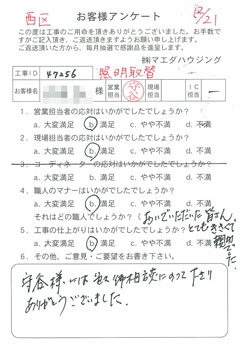 西区
お客様アンケート
12/21
この度は工事のご用命を頂きありがとうございました。お手数で
すがご記入頂き、ご返送頂きますようお願い申し上げます。
ご返送頂いた方から、毎月抽選で感謝品を進呈します。
㈱マエダハウジング
工事ID 47256 照明取替
お客様名 様 営業担当 守谷 現場担当 IC担当 ー
1. 営業担当者の応対はいかがでしたでしょうか?
a. 大変満足 b. 満足 c. やや不満 d. 不満
2. 現場担当者の応対はいかがでしたでしょうか?
a. 大変満足 b. 満足 c. やや不満 d. 不満
3. コーディネーターの応対はいかがでしたでしょうか?
a. 大変満足 b. 満足 c. やや不満 d. 不満
4. 職人のマナーはいかがでしたでしょうか?
a. 大変満足 b. 満足 c. やや不満 d. 不満
それはどの職人でしょうか? (おいでいただいた皆さん、
とてもきさくで
5. 工事の仕上がりはいかがでしたでしょうか?
a. 大変満足 b. 満足 c. やや不満 d. 不満
6. その他、ご意見・ご要望をお書き下さい。
守谷様には 相談にのって下さり
ありがとうございました。